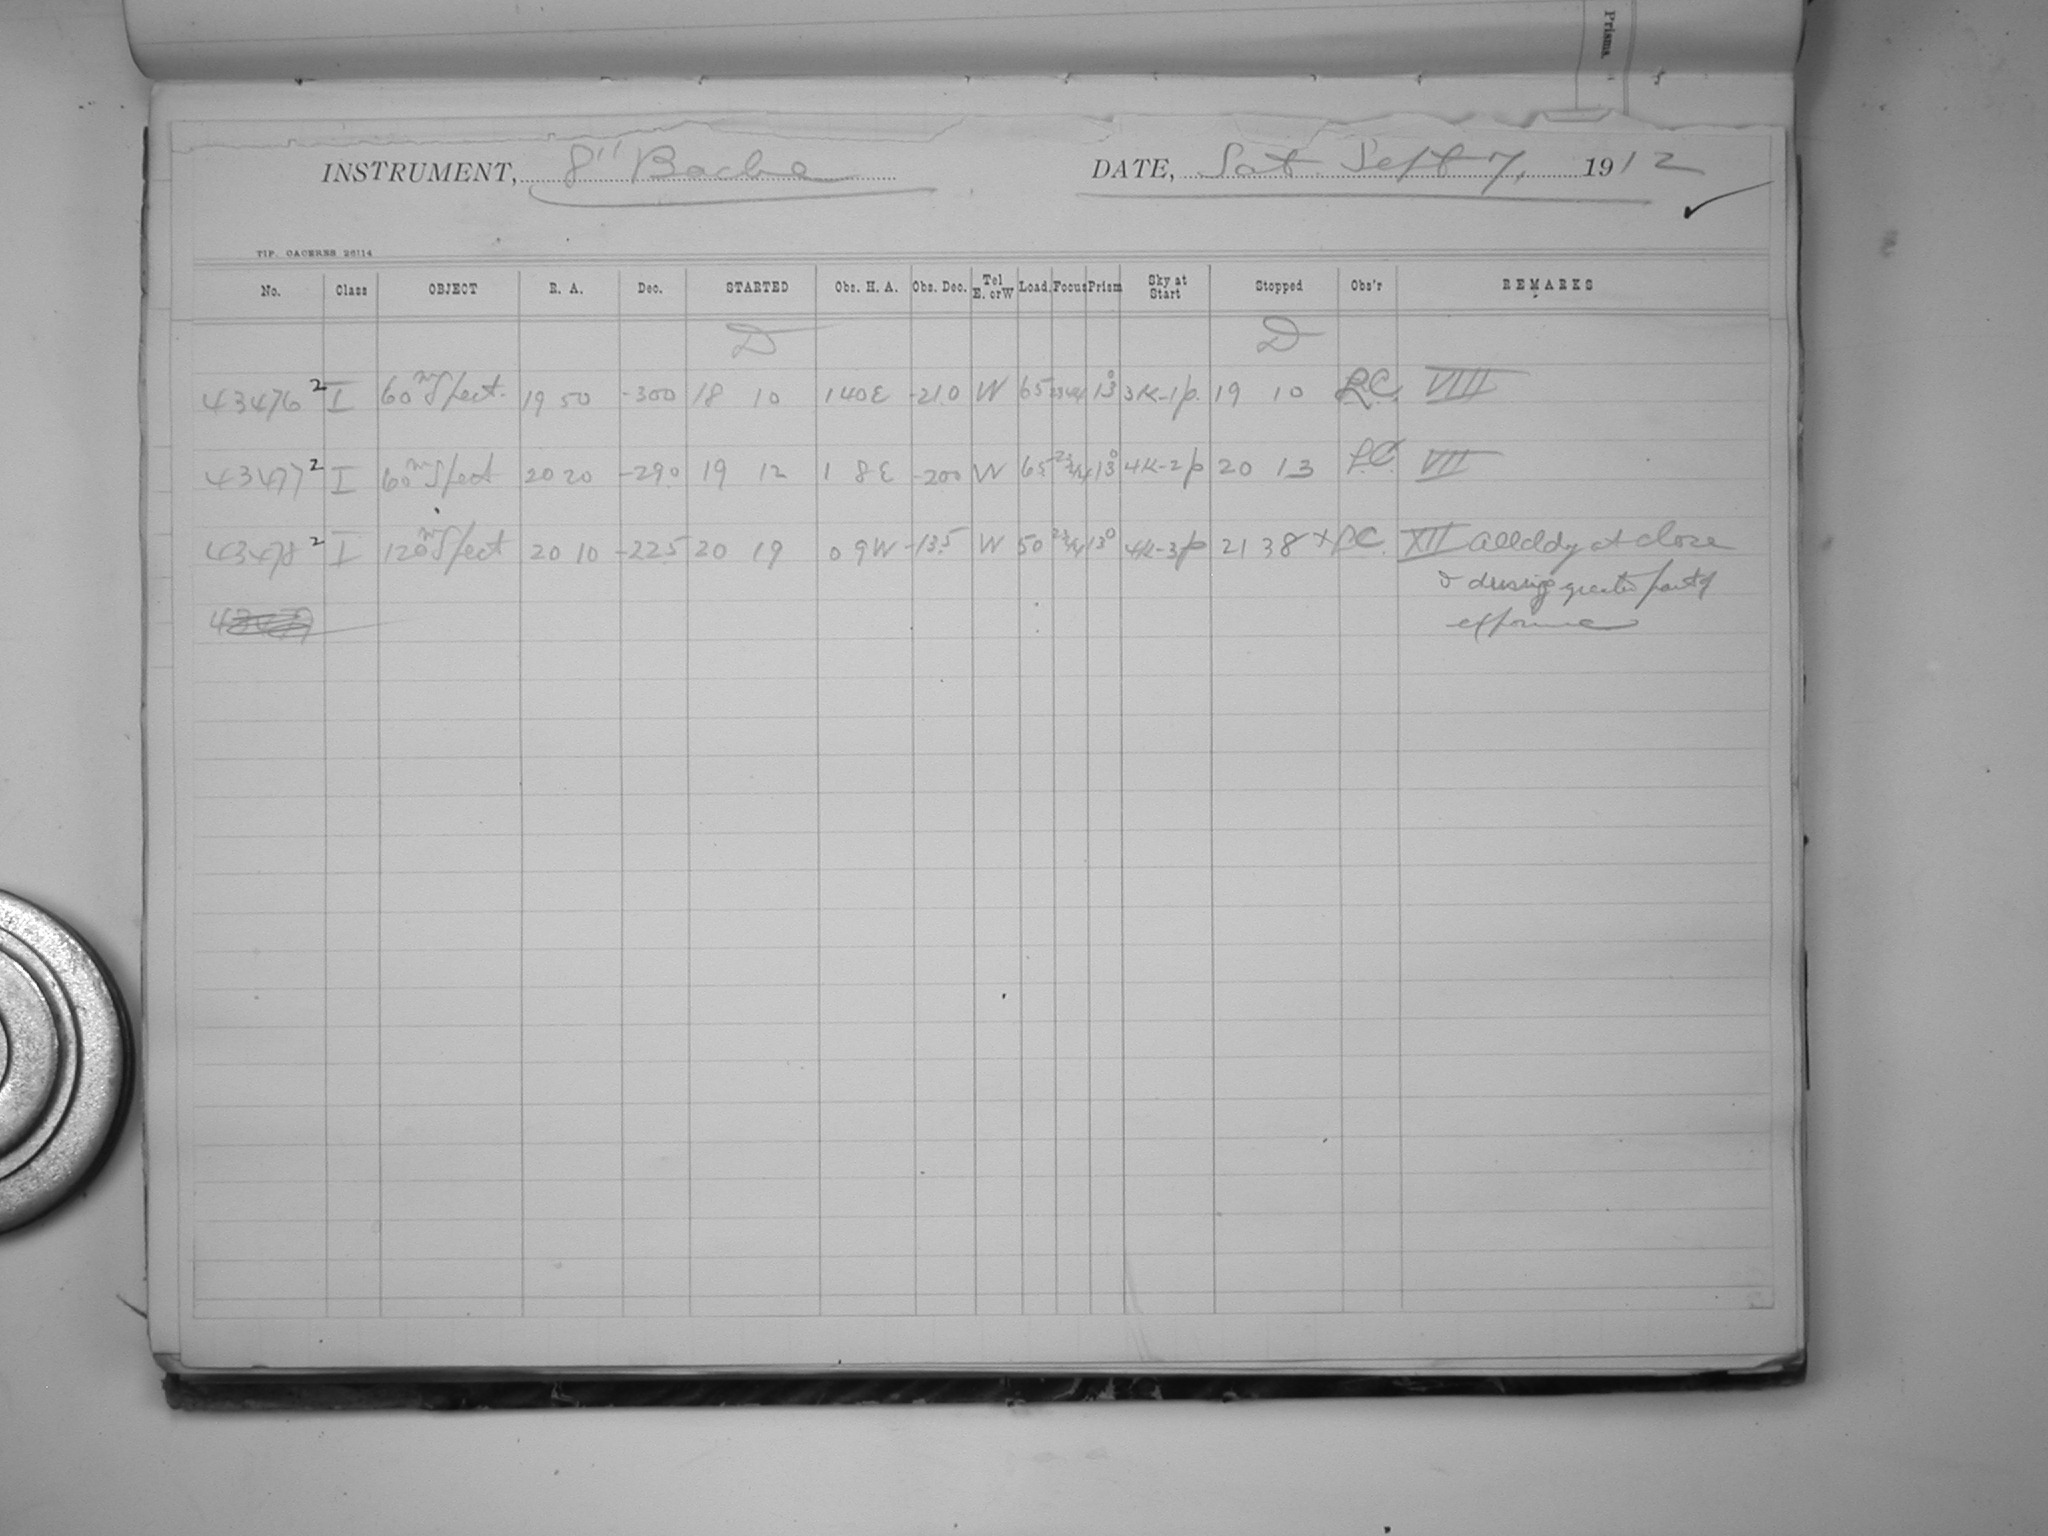 Prisms.
INSTRUMENT, 8" Bache DATE, Sat. Sept 7, 1912
TIP. CACERES 26114
No. Class OBJECT R. A. Dec. STARTED Obs. H. A. Obs. Dec. Tel E. or W Load Focus Prism Sky at Start Stopped Obs'r REMARKS
D D
43476² I 60m Spect. 19 50 -300 18 10 1 40 E -21.0 W 65 13° 3K-1p. 19 10 VIII
43477² I 60m Spect 20 20 -290 19 12 1 8 E -200 W 65 13° 4K-2p 20 13 VII
43478² I 120m Spect 20 10 -225 20 19 0 9 W -13.5 W 50 13° 4K-3p 21 38 x XII all cldy at close
& during greater part of
exposure